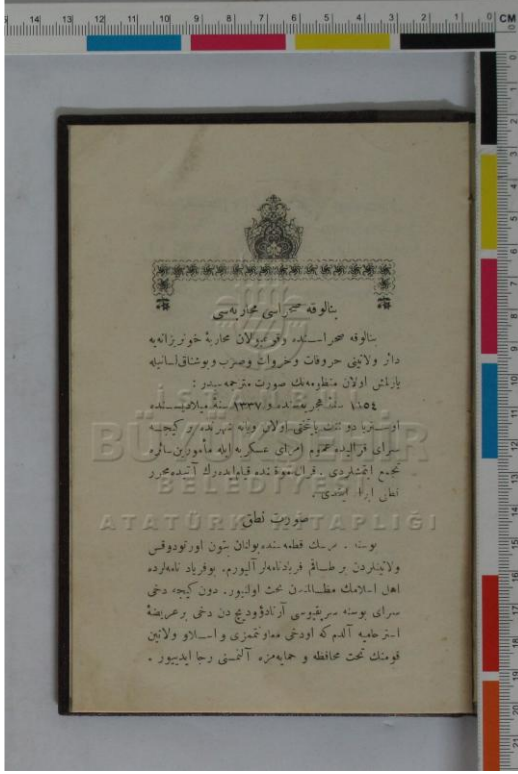 بنالوقه صحراسی محاربه‌سی
بنالوقه صحراسنده وقوعبولان محاربهٔ خونریزانه‌یه
دائر ولاتینی حروفات وخروات وصرب وبوشناق لسانیله
یازلمش اولان منظومه‌نك صورت ترجمه‌سیدر :
سنهٔ هجریه‌سنده و ١٣٣٧ سنهٔ میلادیه‌سنده
اوستریا دولتنك پایتختی اولان ویانه شهرنده بر کیجه
سرای قرالیده عموم امرای عسکریه ایله مأمورین سائره
تجمع ایتمشلردی . قرال موقعنده قیام ایده‌رك آتیده محرر
نطقی ایراد ایتدی .
صورت نطق
بوسنه . هرسك قطعه‌سنده بولنان بتون اورتودوقس
ولاتینلردن بر طاقم فریادنامه‌لر آلیورم . بوفریاد نامه‌لرده
اهل اسلامك مظالمندن بحث اولنیور . دون کیجه دخی
سرای بوسنه سرپقپوسی دن دخی برعریضهٔ
استرحامیه آلدم که اودخی معاونتمزی و اسلاو ولاتین
قومنك تحت محافظه و حمایه‌مزه آلنمسنی رجا ایدییور .
İSTANBUL
BÜYÜKŞEHİR
BELEDİYESİ
ATATÜRK KİTAPLIĞI
14 13 12 11 10 9 8 7 6 5 4 3 2 1 0 CM
0
1
2
3
4
5
6
7
8
9
10
11
12
13
14
15
16
17
18
19
20
21